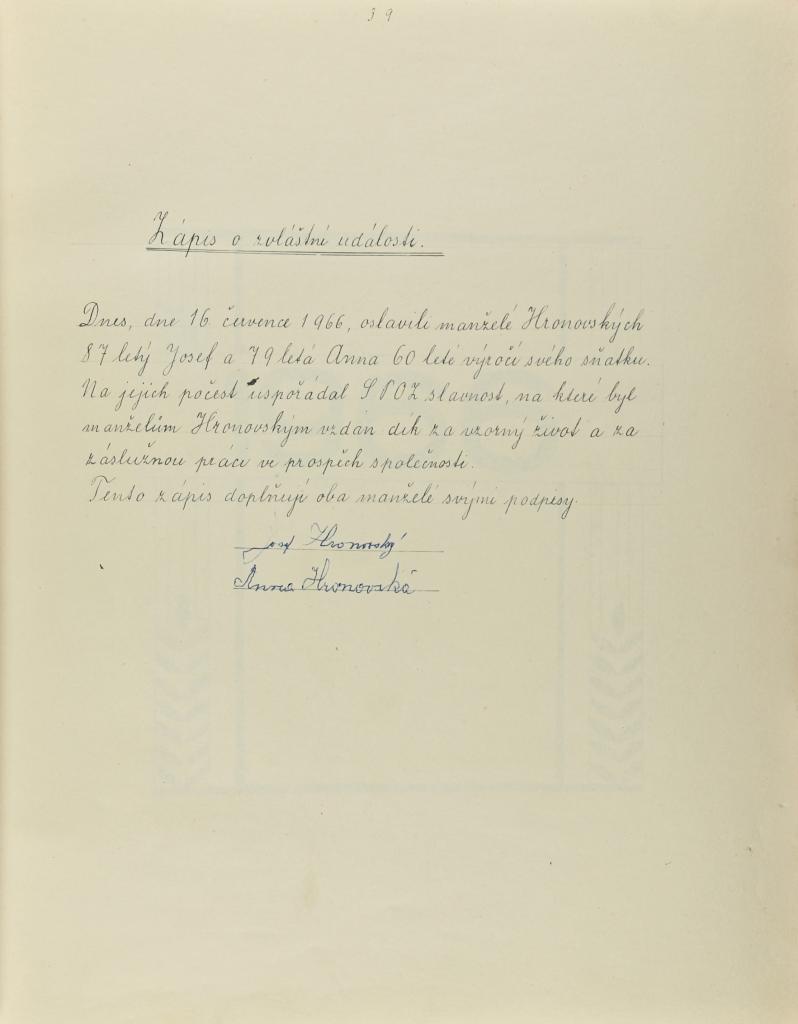 39
Zápis o zvláštní události.
Dnes, dne 16 července 1966, oslavili manželé Hronovských
87 letý Josef a 79 letá Anna 60 leté výročí svého sňatku.
Na jejich počest uspořádal SPOZ slavnost, na které byl
manželům Hronovským vzdán dík za vzorný život a za
záslužnou práci ve prospěch společnosti.
Tento zápis doplňují oba manželé svými podpisy.
Josef Hronovský
Anna Hronovská